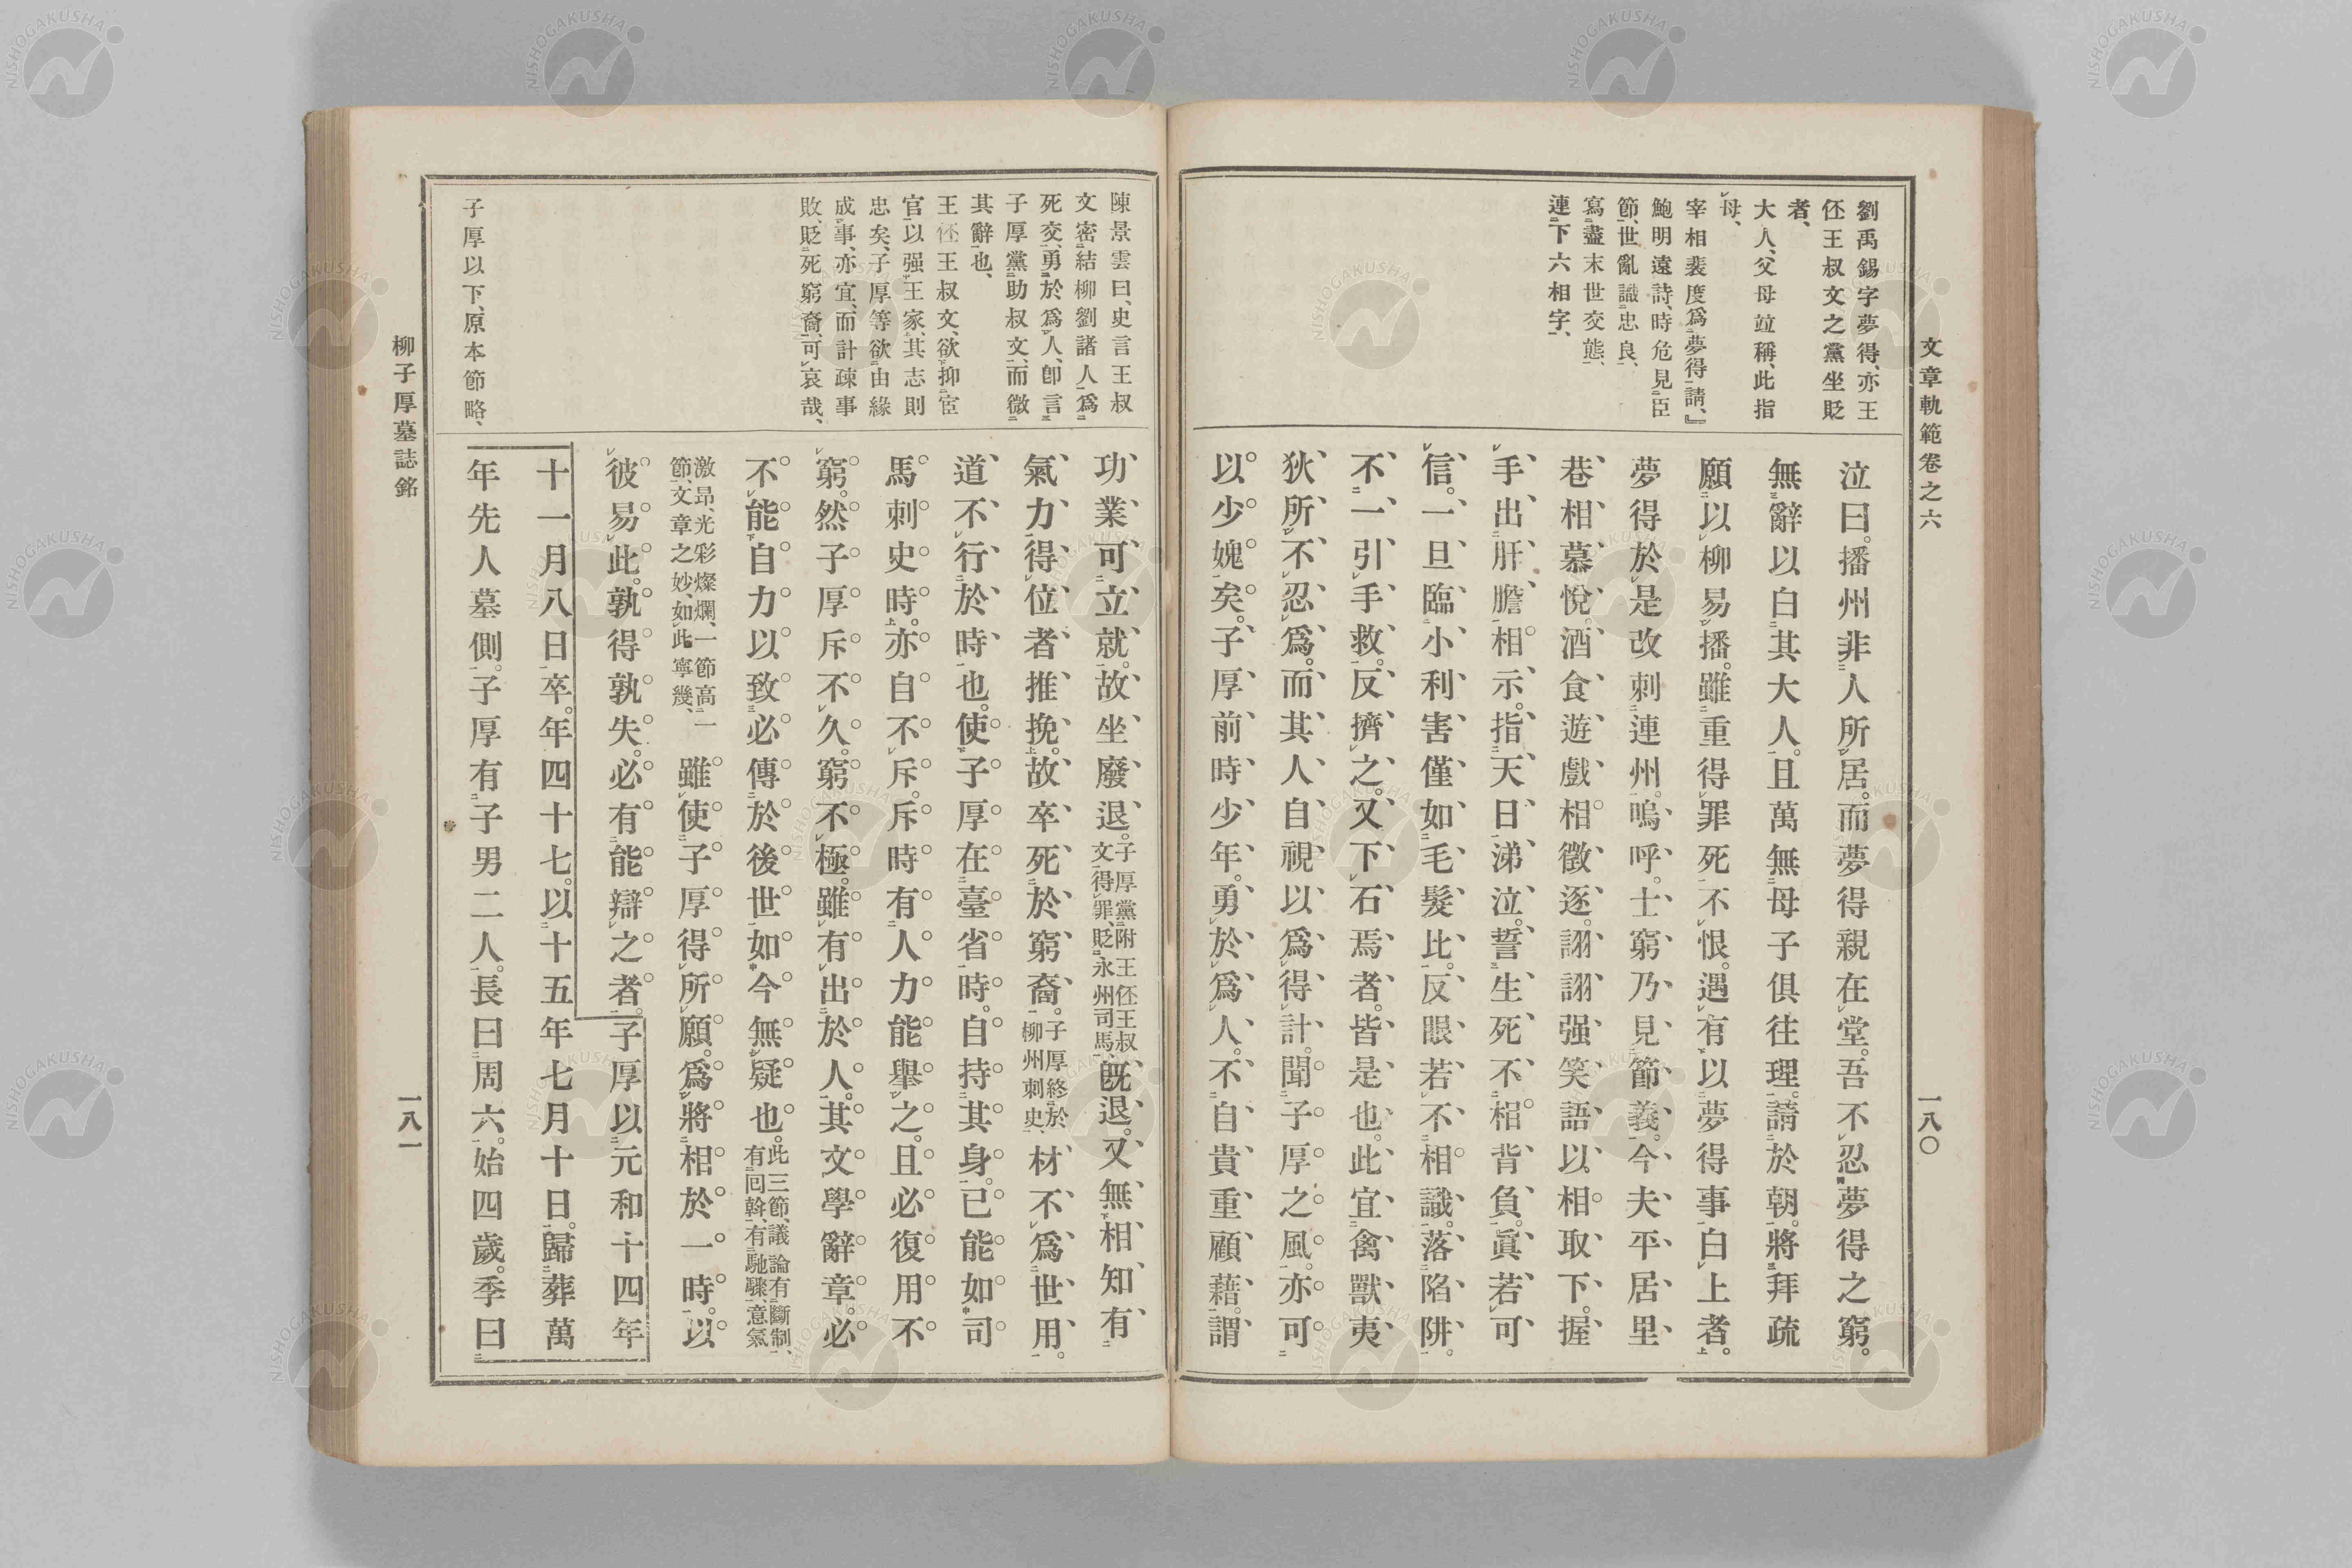 文章軌範卷之六
一八〇
劉禹錫字夢得、亦王
伾王叔文之黨坐貶
者、
大人、父母竝稱、此指
母、
宰相裴度爲夢得請、』
鮑明遠詩、時危見臣
節、世亂識忠良、
寫盡末世交態、
連下六相字、
泣曰。播州非人所居。而夢得親在堂。吾不忍夢得之窮。
無辭以白其大人。且萬無母子俱往理。請於朝。將拜疏
願以柳易播。雖重得罪死不恨。遇有以夢得事白上者。
夢得於是改刺連州。嗚呼。士窮乃見節義。今夫平居里
巷相慕悅。酒食遊戲相徵逐。詡詡强笑語以相取下。握
手出肝膽相示。指天日涕泣。誓生死不相背負。眞若可
信。一旦臨小利害僅如毛髮比。反眼若不相識。落陷阱。
不一引手救。反擠之。又下石焉者。皆是也。此宜禽獸夷
狄所不忍爲。而其人自視以爲得計。聞子厚之風。亦可
以少媿矣。子厚前時少年。勇於爲人。不自貴重顧藉。謂
陳景雲曰、史言王叔
文密結柳劉諸人爲
死交、勇於爲人、卽言
子厚黨助叔文、而微
其辭也、
王伾王叔文、欲抑宦
官以强王家、其志則
忠矣、子厚等欲由緣
成事、亦宜、而計疎事
敗、貶死窮裔、可哀哉、
子厚以下、原本節略、
功業可立就。故坐廢退。子厚黨附王伾王叔文得罪、貶永州司馬、旣退。又無相知有
氣力得位者推挽。故卒死於窮裔。子厚終於柳州刺史、材不爲世用。
道不行於時也。使子厚在臺省時。自持其身。已能如司
馬刺史時。亦自不斥。斥時有人力能舉之。且必復用不
窮。然子厚斥不久。窮不極。雖有出於人。其文學辭章。必
不能自力以致必傳於後世如今無疑也。此三節、議論有斷制、有囘斡、有馳驟、意氣
激昂、光彩燦爛、一節高一節、文章之妙、如此寧幾、雖使子厚得所願。爲將相於一時。以
彼易此。孰得孰失。必有能辯之者。子厚以元和十四年
十一月八日卒。年四十七。以十五年七月十日。歸葬萬
年先人墓側。子厚有子男二人。長曰周六。始四歲。季曰
柳子厚墓誌銘
一八一